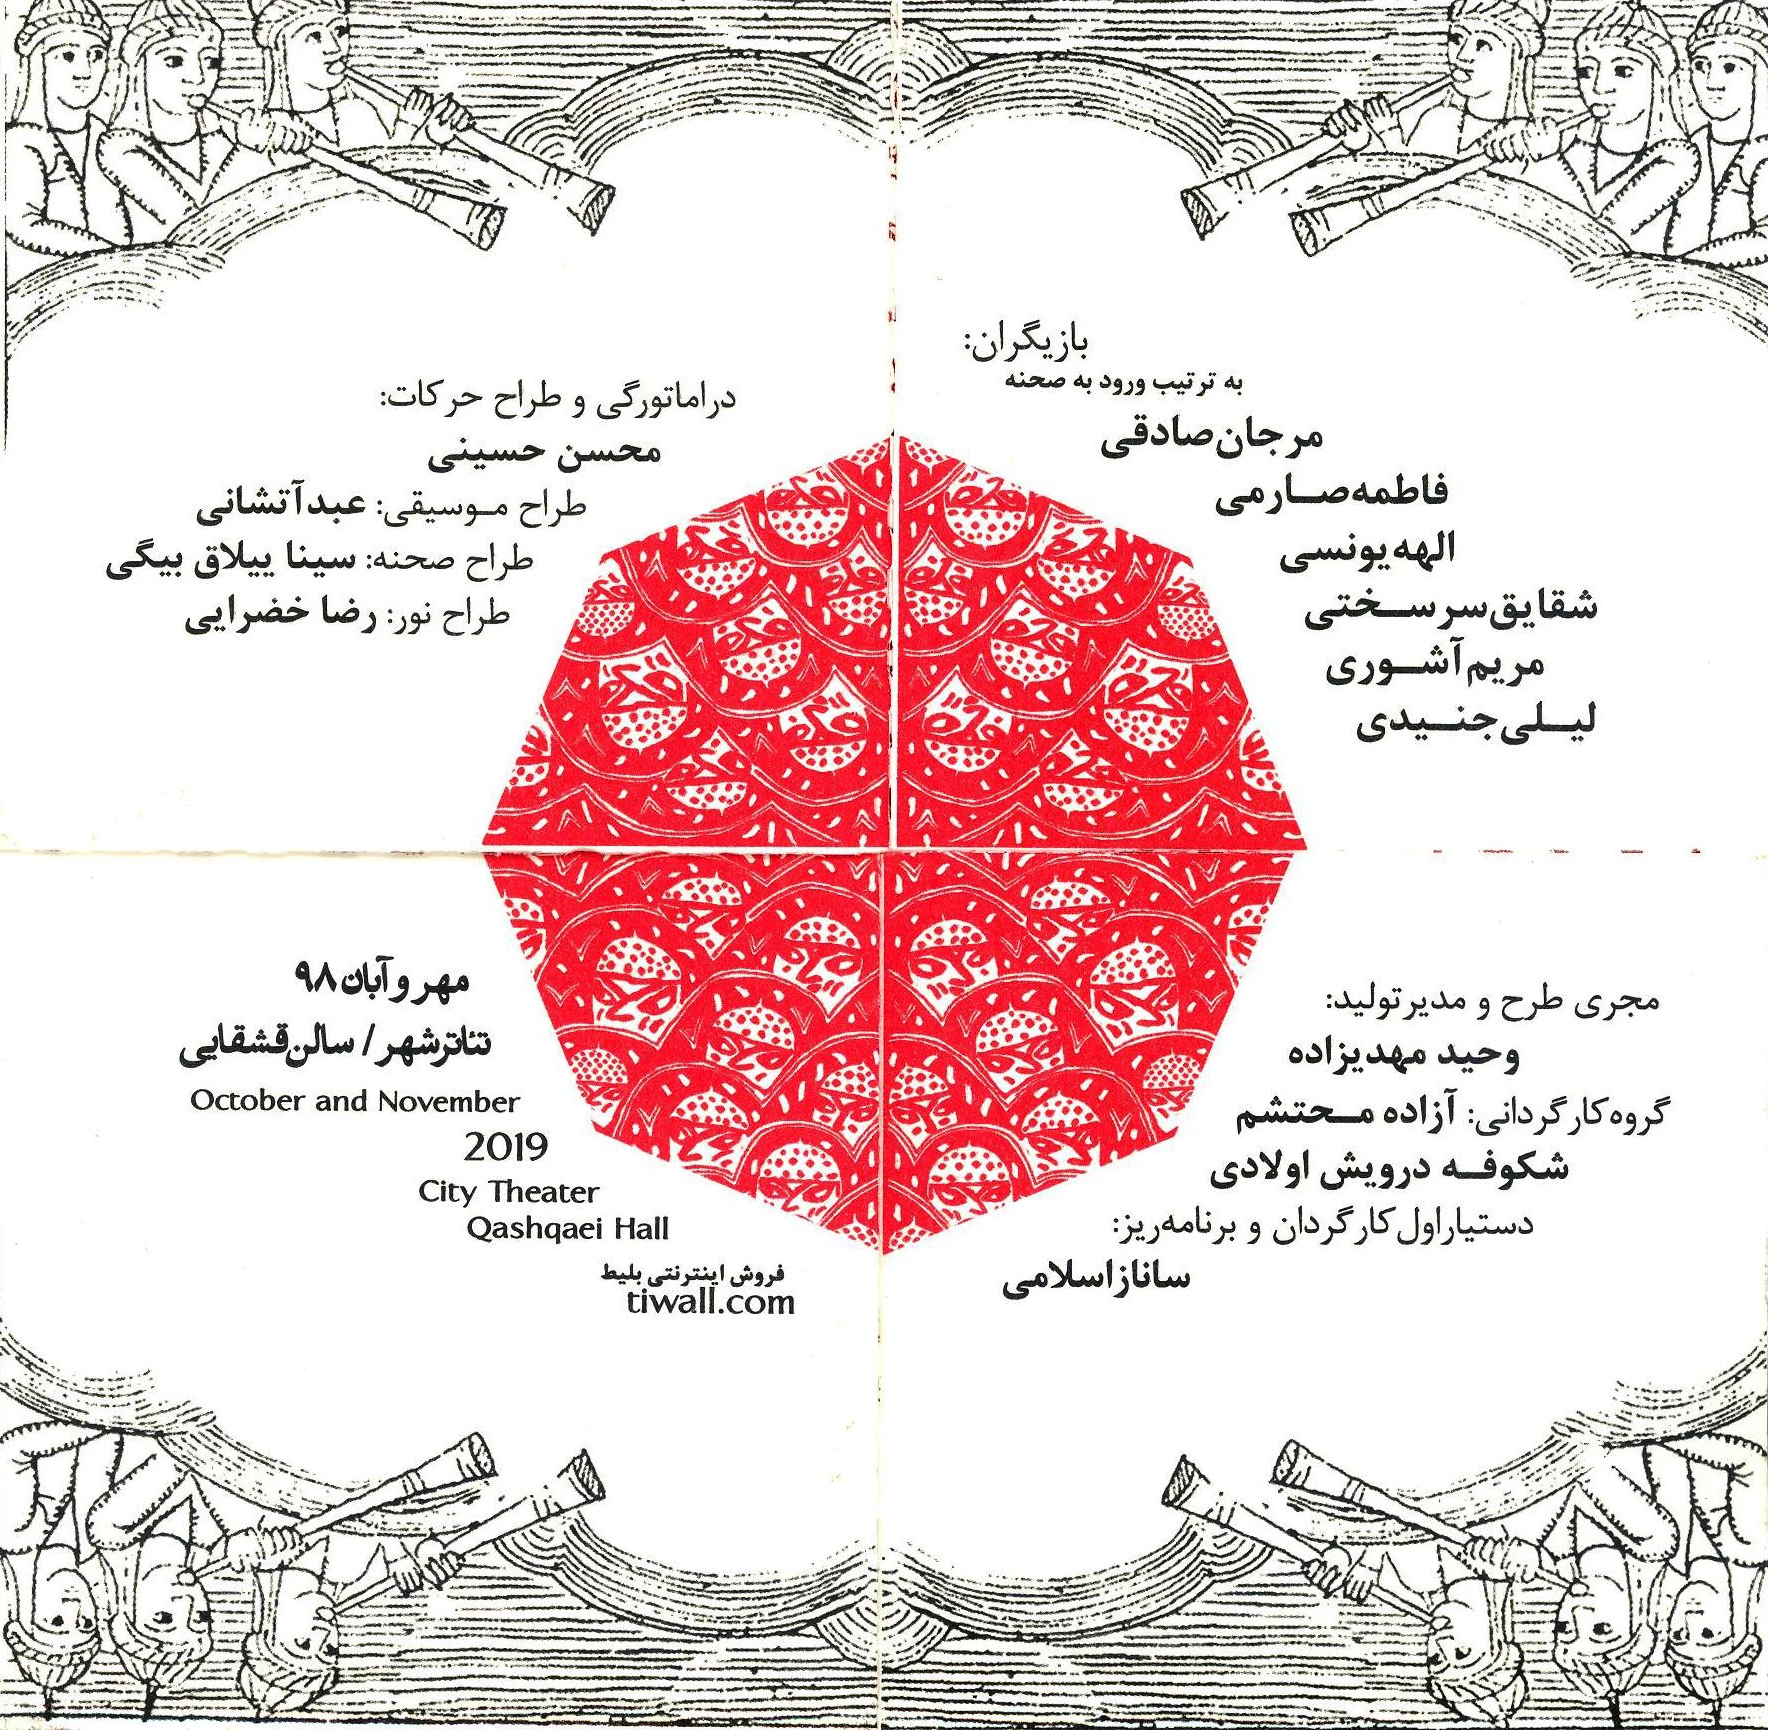 بازیگران:
به ترتیب ورود به صحنه
مرجان صادقی
فاطمه صارمی
الهه یونسی
شقایق سرسختی
مریم آشوری
لیلی جنیدی
دراماتورگی و طراح حرکات:
محسن حسینی
طراح موسیقی: عبدآتشانی
طراح صحنه: سینا ییلاق بیگی
طراح نور: رضا خضرایی
مجری طرح و مدیرتولید:
وحید مهدیزاده
گروه کارگردانی: آزاده محتشم
شکوفه درویش اولادی
دستیار اول کارگردان و برنامه‌ریز:
ساناز اسلامی
مهر و آبان ۹۸
تئاترشهر / سالن قشقایی
October and November
2019
City Theater
Qashqaei Hall
فروش اینترنتی بلیط
tiwall.com